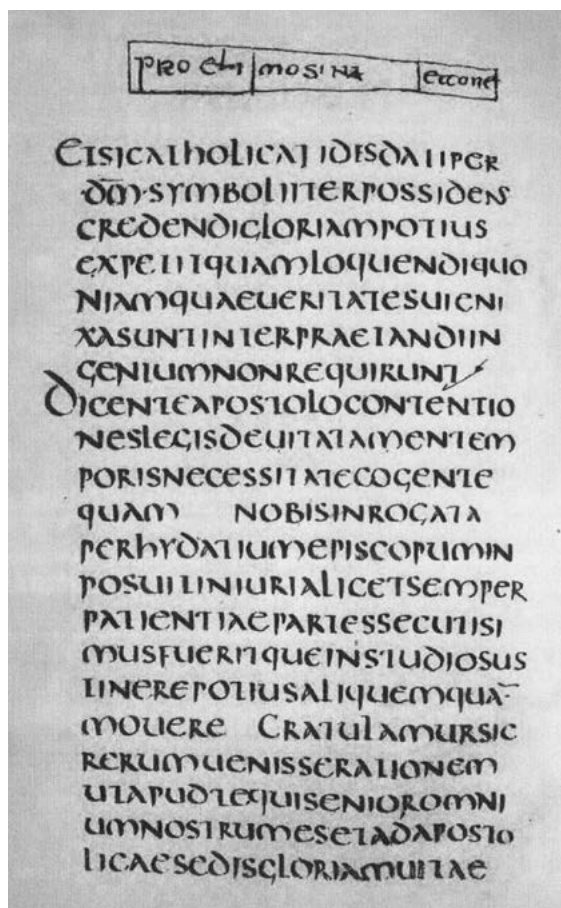 PRO ELI MOSINA
ETSICATHOLICAFIDESDATIPER
D̅M̅·SYMBOLIITERPOSSIDENS
CREDENDIGLORIAMPOTIUS
EXPETITQUAMLOQUENDIQUO
NIAMQUAEUERITATESUIENI
XASUNTINTERPRAETANDIIN
GENIUMNONREQUIRUNT
DICENTEAPOSTOLOCONTENTIO
NESLEGISDEUITATAMENTEM
PORISNECESSITATECOGENTE
QUAM NOBISINROGATA
PERHYDATIUMEPISCOPUMIN
POSUITINIURIALICETSEMPER
PATIENTIAEPARTESSECUTISI
MUSFUERITQUEINSTUDIOSUS
TINEREPOTIUSALIQUEMQUA̅
MOUERE GRATULAMURSIC
RERUMUENISSERATIONEM
UTAPUDTEQUISENIOROMNI
UMNOSTRUMESETADAPOSTO
LICAESEDISGLORIAMUITAE